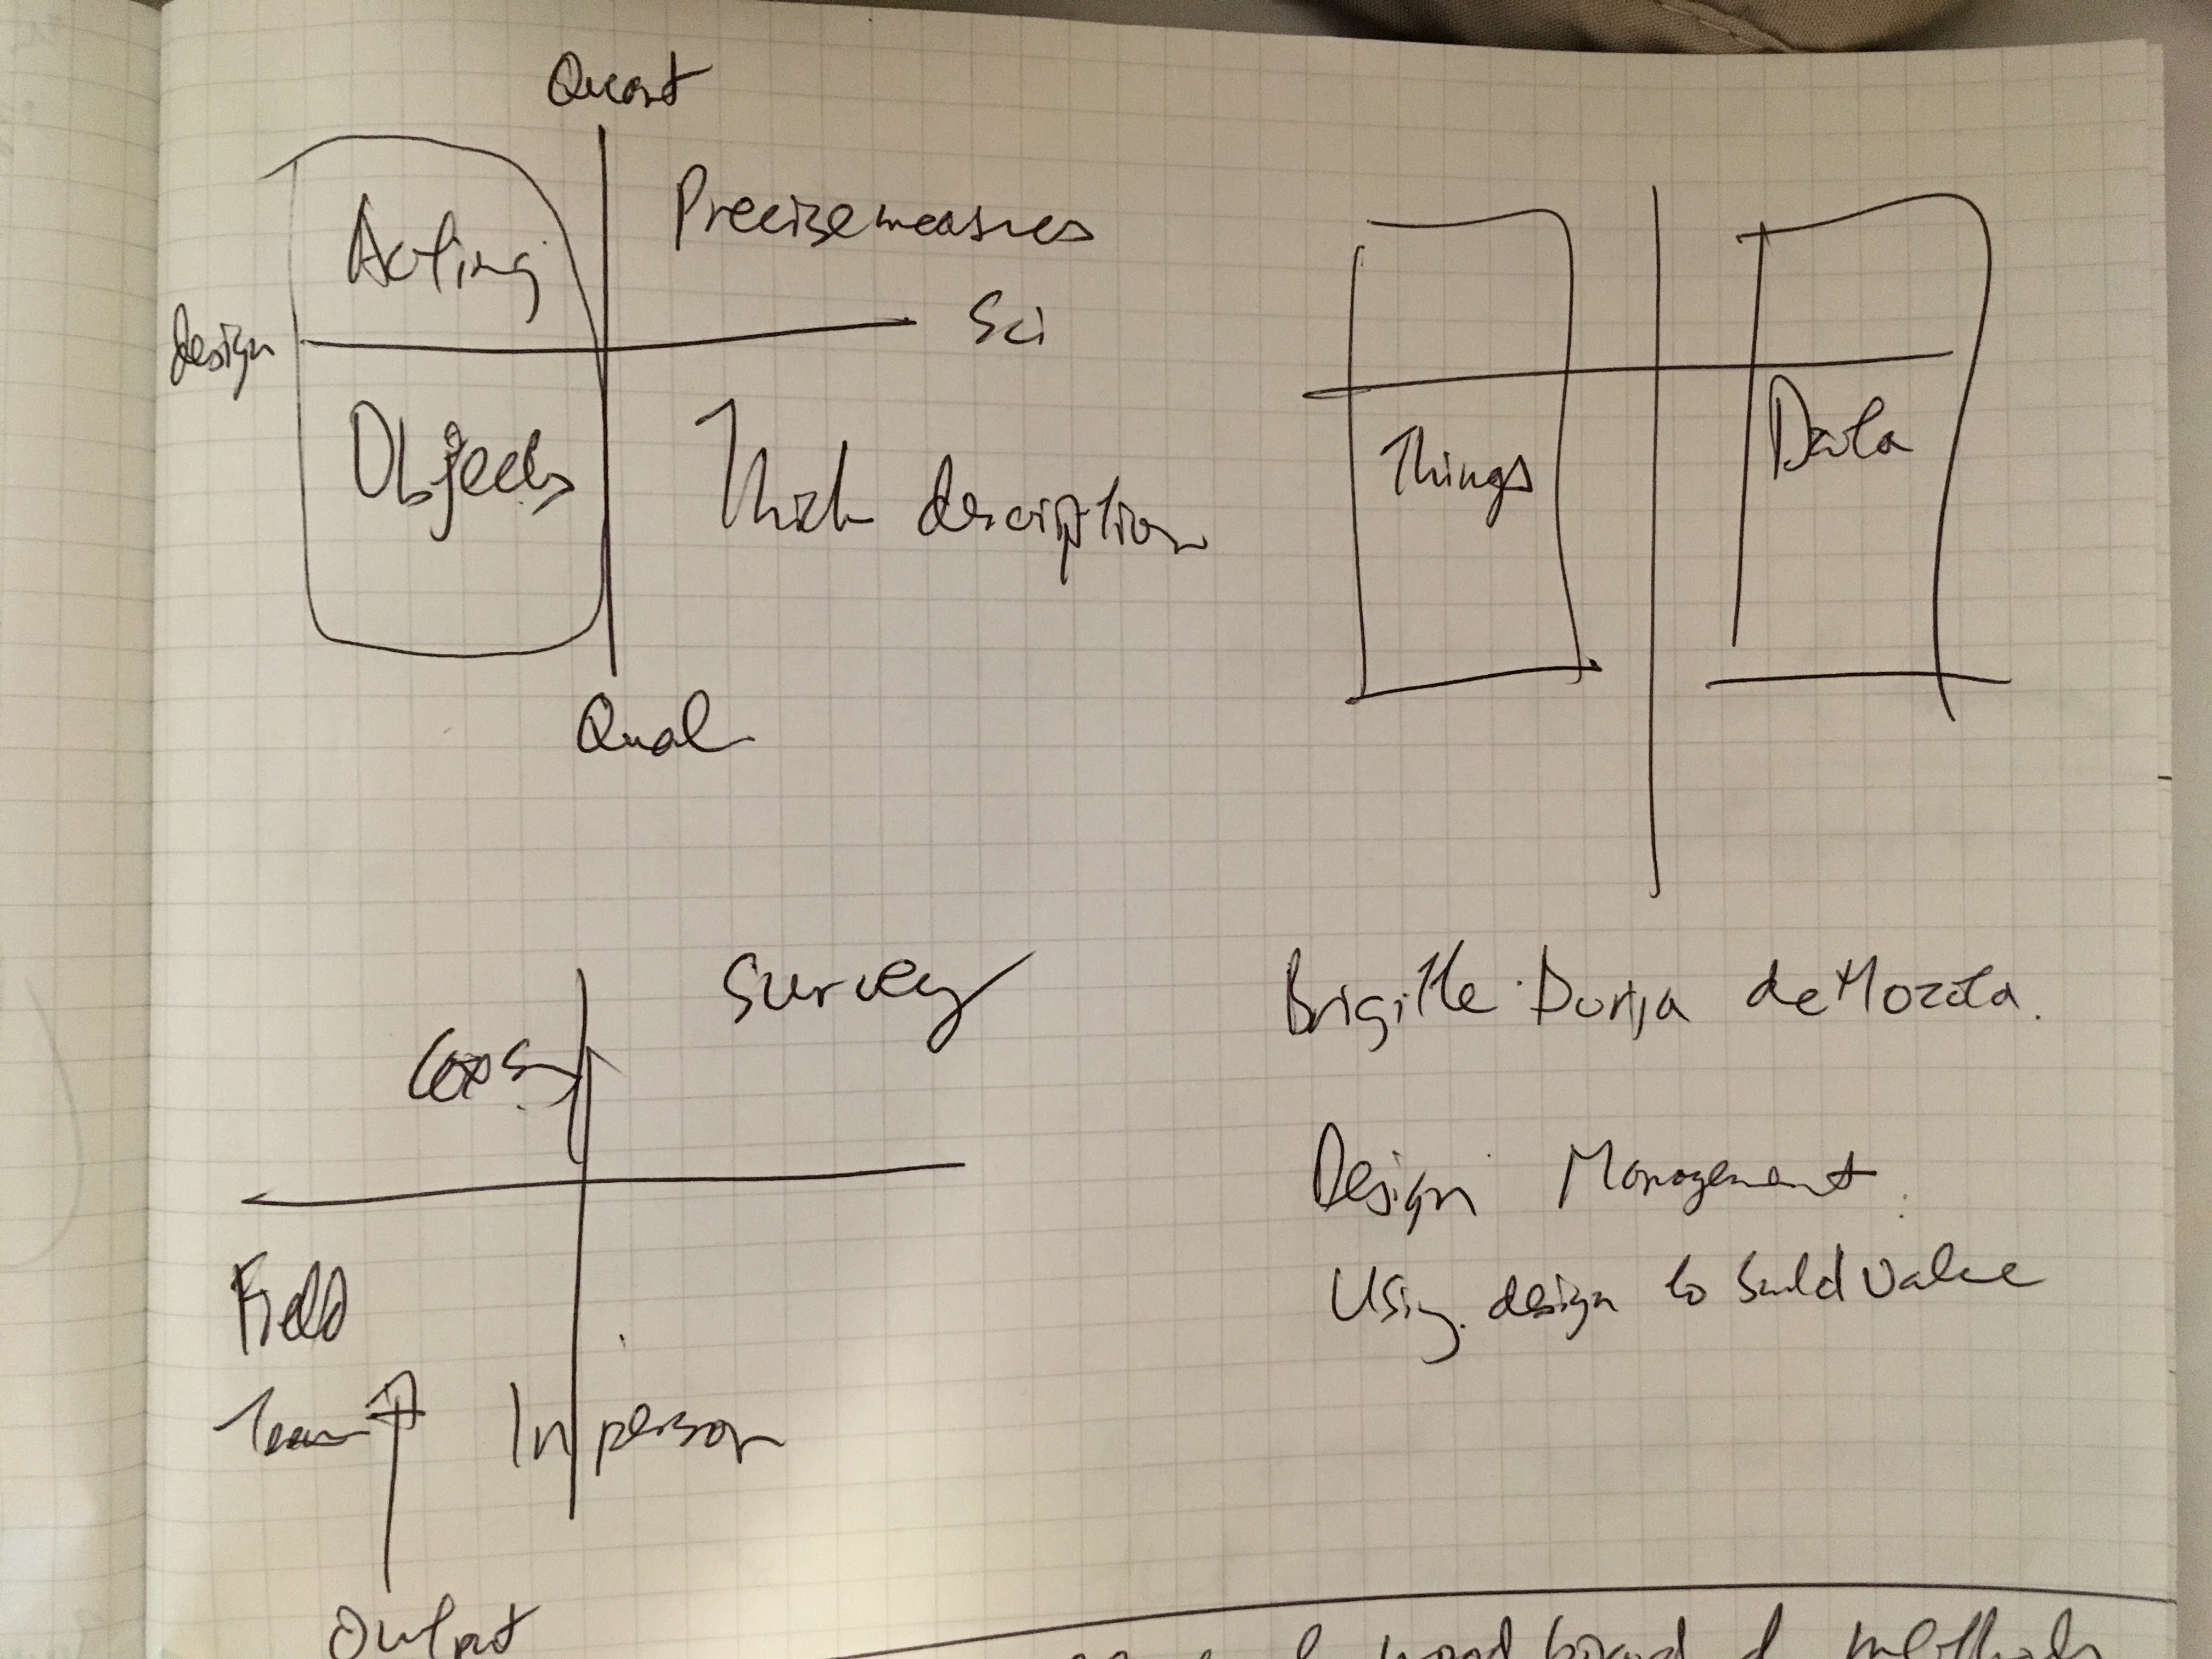 Quant
Acting
Precise measures
design
Sci
Objects
Thick description
Qual
Things
Data
Survey
Field
Team
In person
Output
Brigitte Borja de Mozota.
Design Management
Using design to build value
moodboard of methods